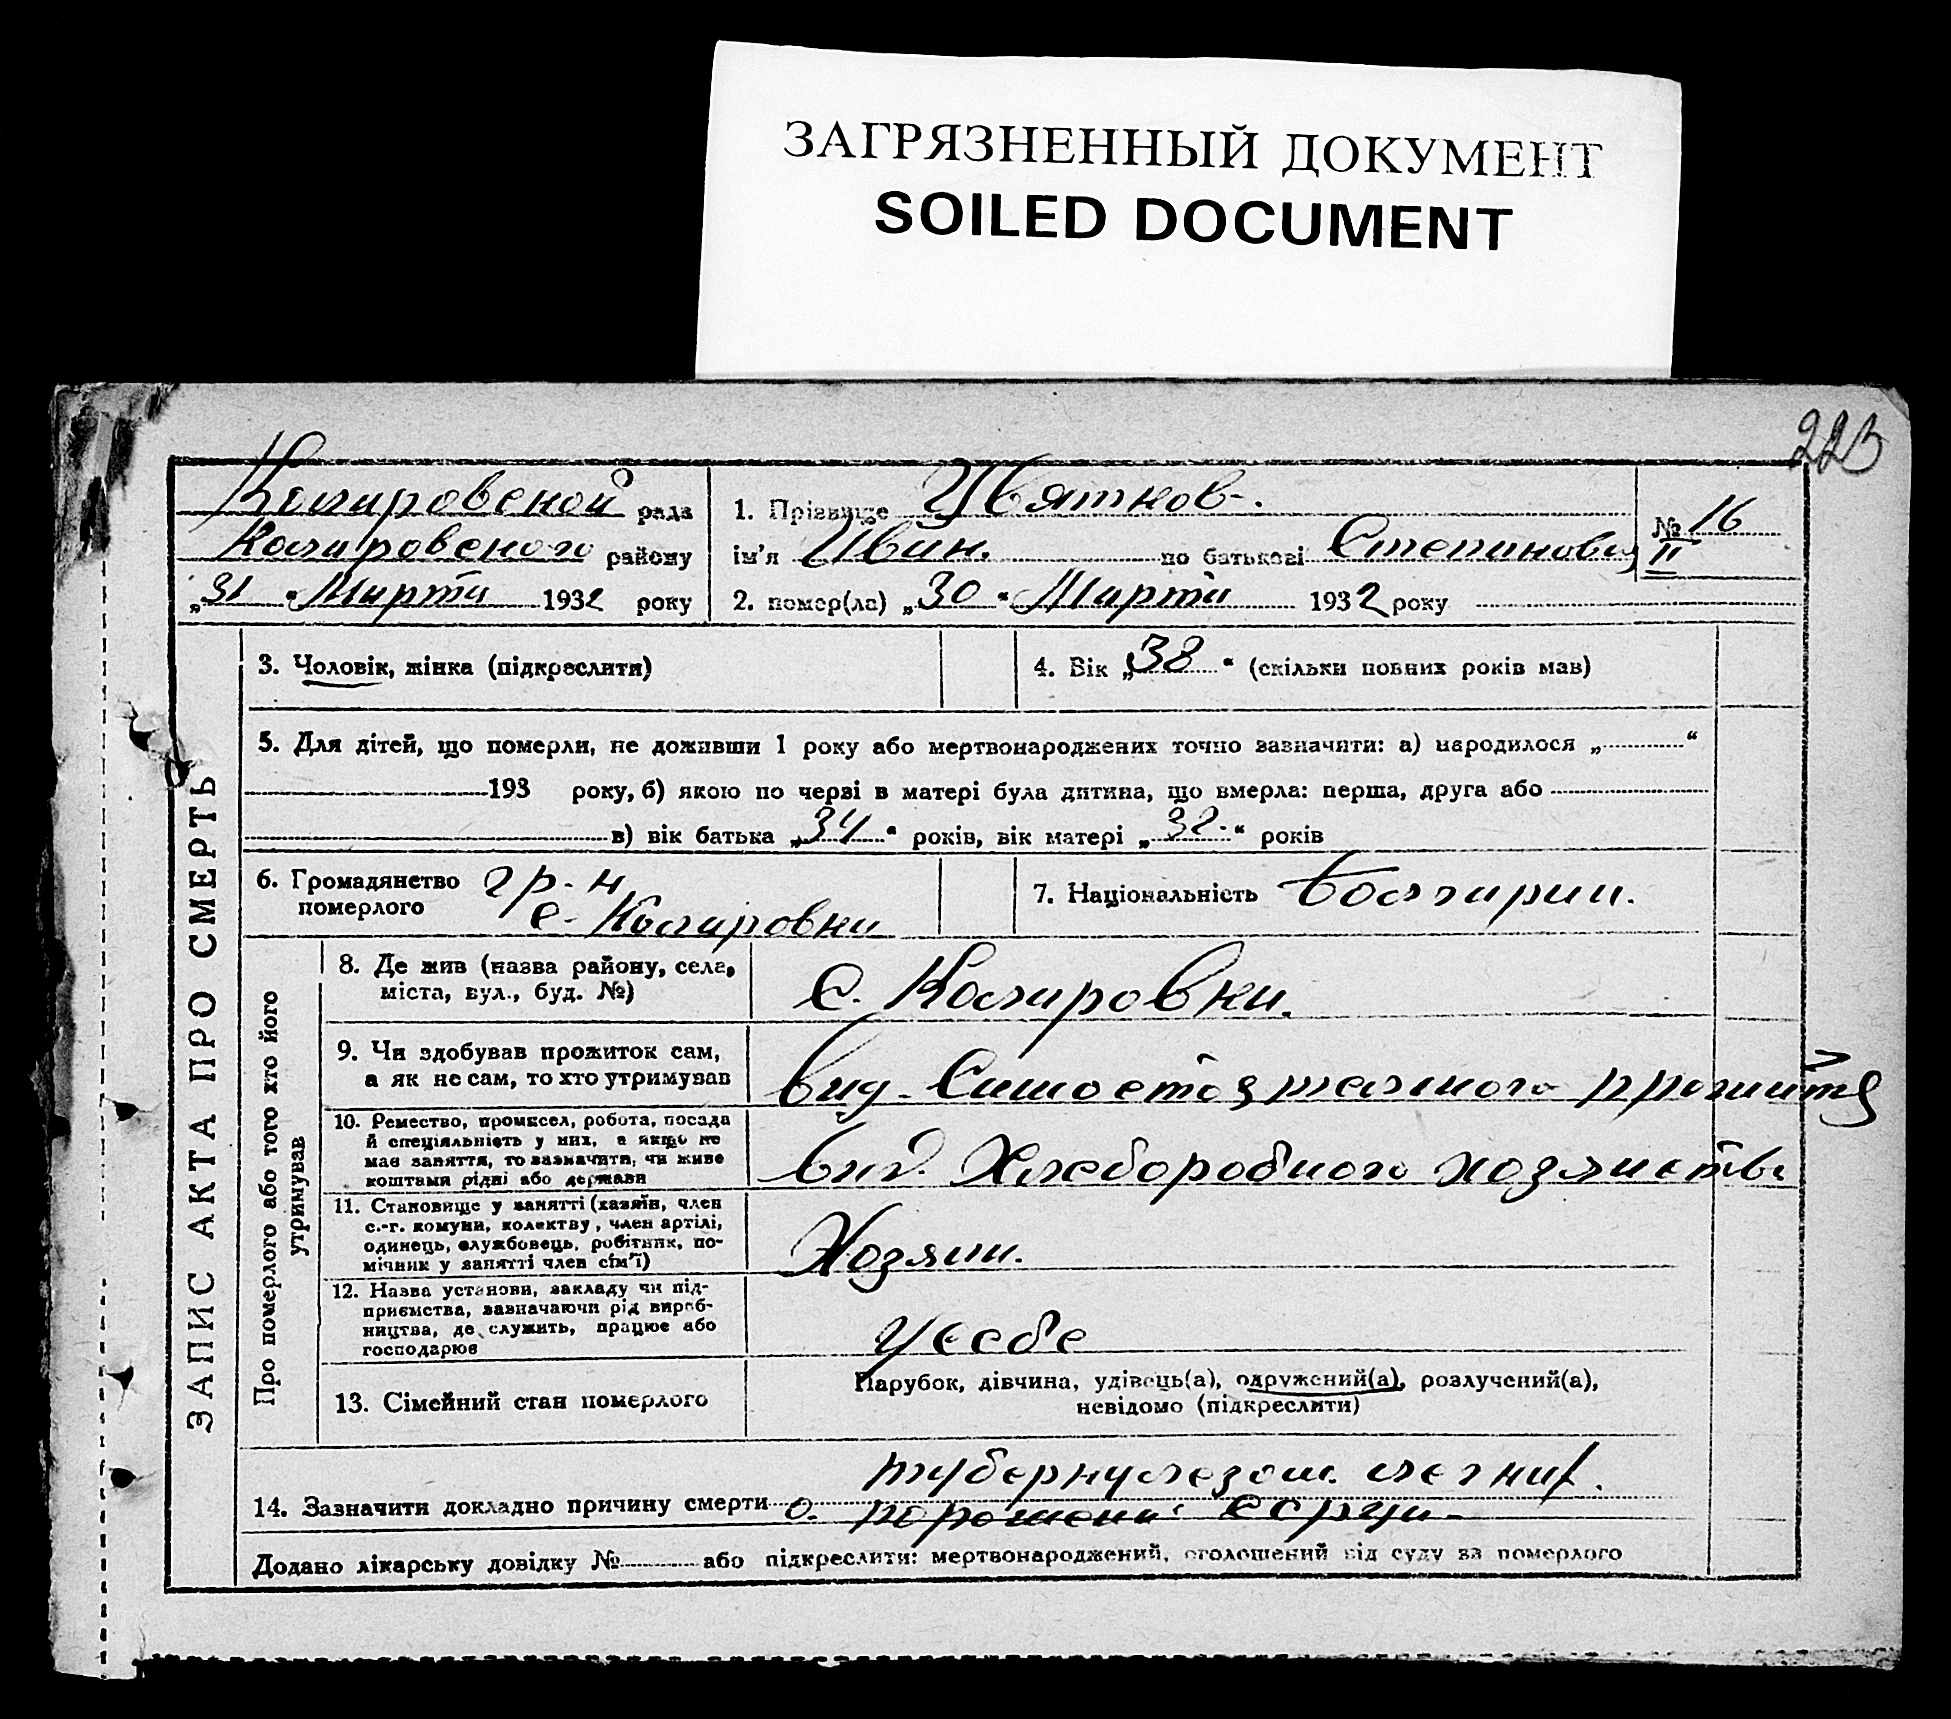 ЗАГРЯЗНЕННЫЙ ДОКУМЕНТ
SOILED DOCUMENT
223
Коларовской рада
Коларовского району
„31“ Марта 1932 року
1. Прізвище Цвятков.
ім'я Иван. по батькові Степанович
№ 16
II
2. помер(ла) „30“ Марта 1932 року
ЗАПИС АКТА ПРО СМЕРТЬ
3. Чоловік, жінка (підкреслити)
4. Вік „38“ (скільки повних років мав)
5. Для дітей, що померли, не доживши 1 року або мертвонароджених точно зазначити: а) народилося „ “
193 року, б) якою по черзі в матері була дитина, що вмерла: перша, друга або
в) вік батька „34“ років, вік матері „32“ років
6. Громадянство гр-н
померлого с. Коларовки
7. Національність Болгарин.
Про померлого або того хто його
утримував
8. Де жив (назва району, села,
міста, вул., буд. №)
с. Коларовки.
9. Чи здобував прожиток сам,
а як не сам, то хто утримував
10. Ремество, промисел, робота, посада
й спеціяльність у них, а якщо не
має заняття, то зазначити, чи живе
коштами рідні або держави
Хлеборобного хозяйства
11. Становище у занятті (хазяїн, член
с.-г. комуни, колектву, член артілі,
одинець, службовець, робітник, по-
мічник у занятті член сім'ї)
Хозяин.
12. Назва установи, закладу чи під-
приємства, зазначаючи рід вироб-
ництва, де служить, працює або
господарює
у себе
13. Сімейний стан померлого
Парубок, дівчина, удівець(а), одружений(а), розлучений(а),
невідомо (підкреслити)
туберкулезом легких.
14. Зазначити докладно причину смерти о. порожени сердц
Додано лікарську довідку № або підкреслити: мертвонароджений, оголошений від суду за померлого